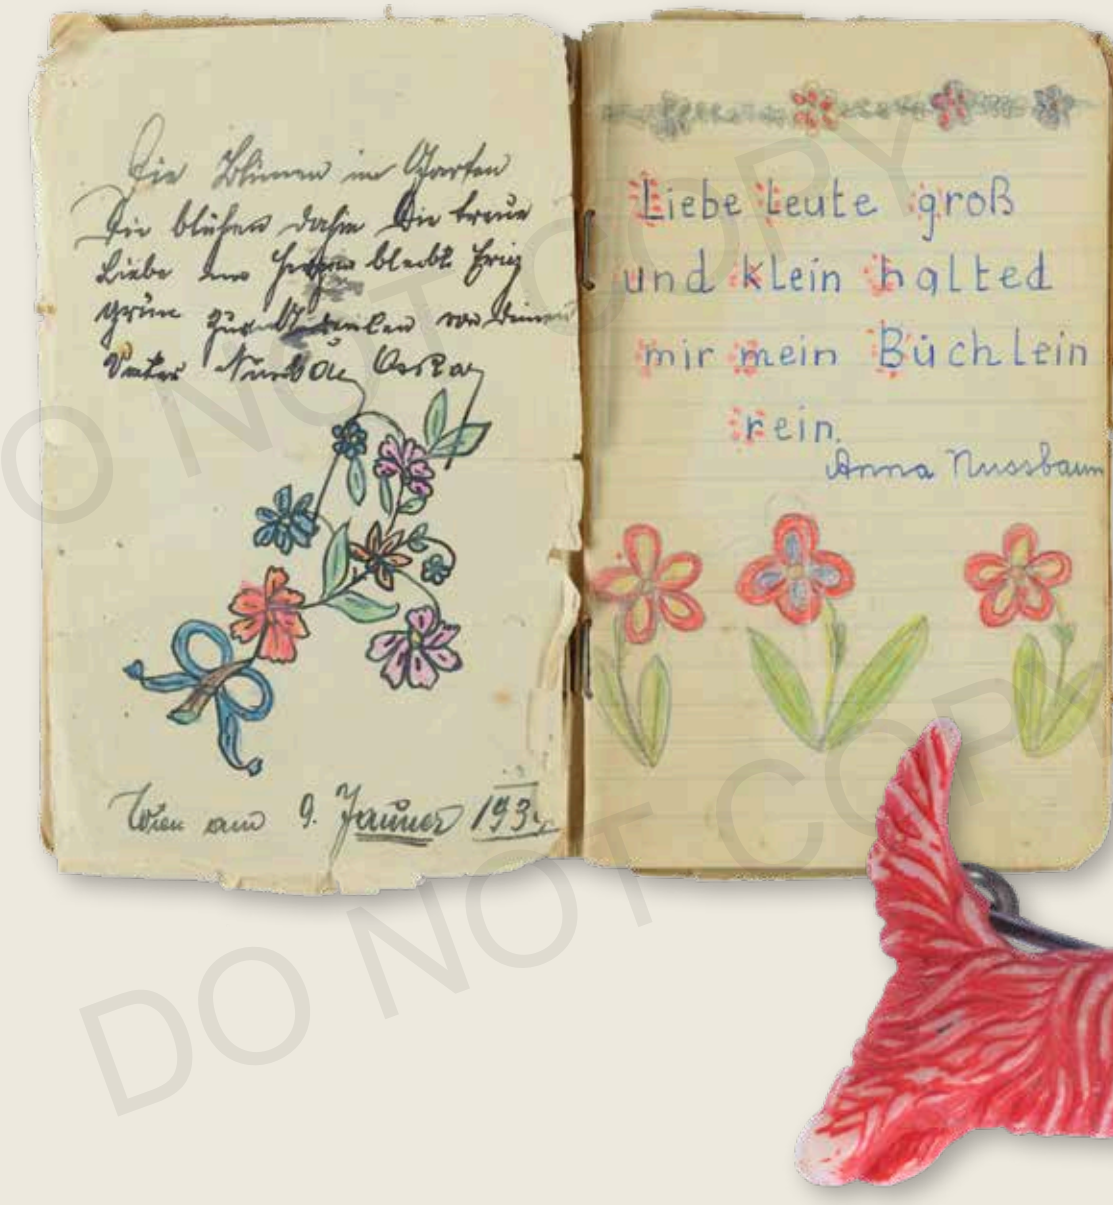 Die Blumen im Garten
Die blühen dahin Die treue
Liebe im Herzen bleibt Ewig
grün zum Andenken von Deinem
Vater Oskar
Wien am 9. Jänner
Liebe Leute groß
und klein halted
mir mein Büchlein
rein.
Anna Nussbaum
DO NOT COPY
DO NOT COPY